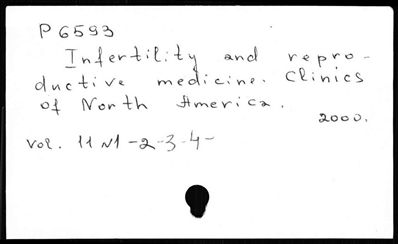 P 6593
Infertility and repro-
ductive medicine. Clinics
of North America.
2000.
vol. 11 N1 -2-3-4-